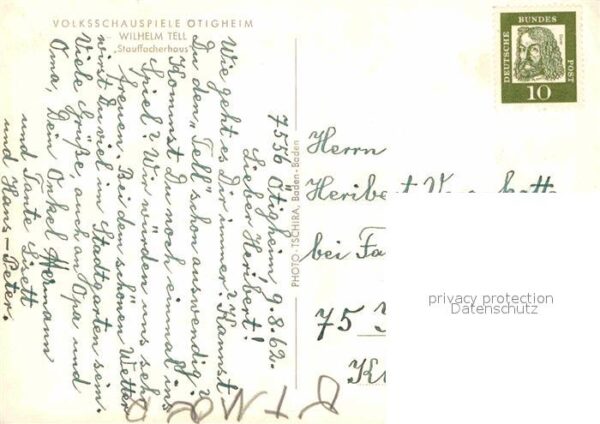 VOLKSSCHAUSPIELE ÖTIGHEIM
WILHELM TELL
„Stauffacherhaus“
7556 Ötigheim 9.8.62.
Lieber Heribert!
Wie geht es Dir immer? Kannst
Du den „Tell“ schon auswendig?
Kommst Du noch einmal ins
Spiel? Wir würden uns sehr
freuen. Bei dem schönen Wetter
wirst Du viel im Stadtgarten sein.
Viele Grüße, auch an Opa und
Oma, Dein Onkel Hermann
und Tante Lisett
und Hans-Peter.
PHOTO-TSCHIRA, Baden-Baden
DEUTSCHE BUNDES POST
Dürer
10
Herrn
Heribert
bei Fa
75
privacy protection
Datenschutz